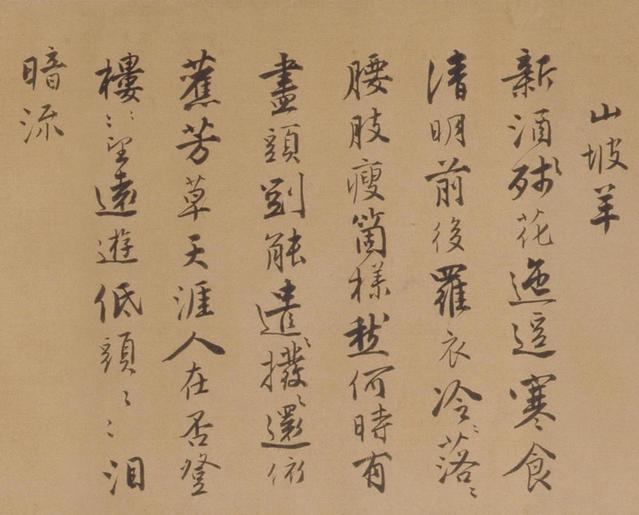 山坡羊
新酒殘花迤逗寒食
清明前後羅衣冷落
腰肢瘦箇樣愁何時有
盡頭能遣撥還依
舊芳草天涯人在否登
樓〻望遠遊低頭〻〻泪
暗流